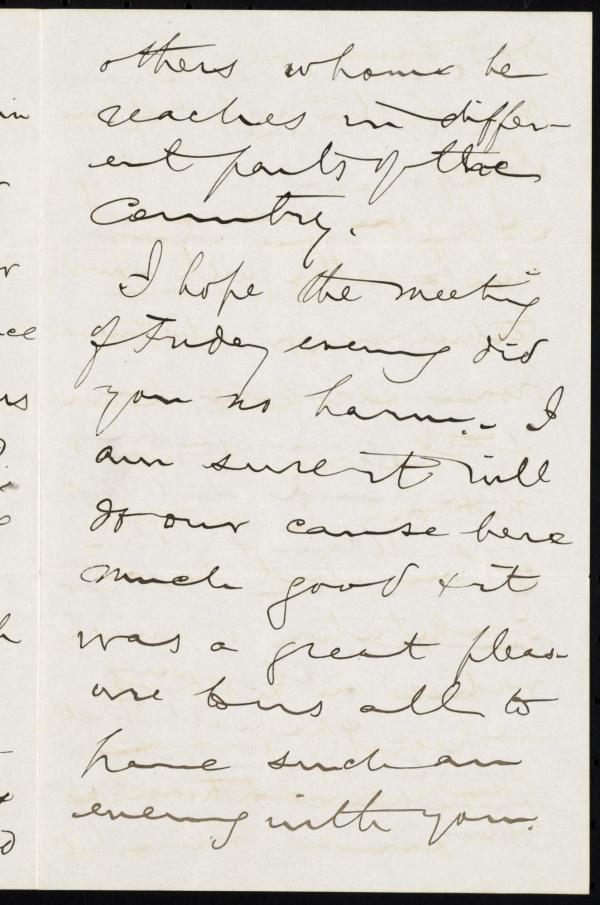 others whom he
reaches in differ-
ent parts of the
Country.
I hope the meeting
of Friday evening did
you no harm. - I
am sure it will
do our cause here
much good & it
was a great pleas-
ure to us all to
have such an
evening with you.